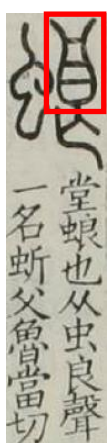 蜋
堂蜋也从虫良聲
一名蚚父魯當切